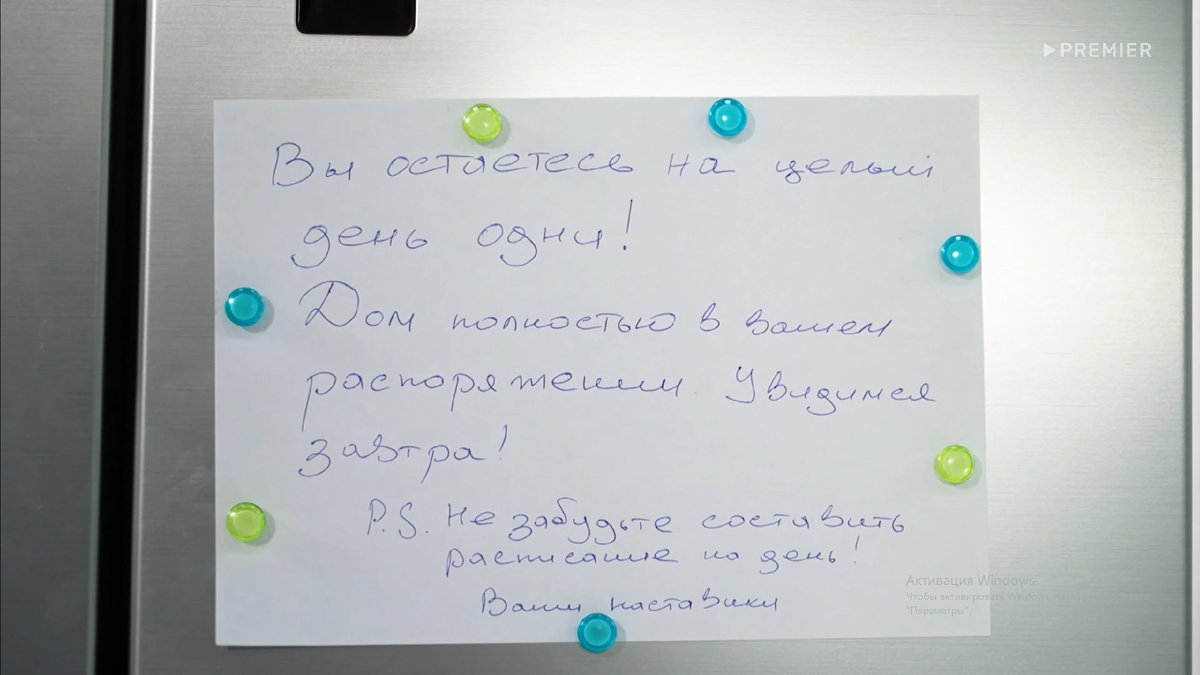 PREMIER
Вы остаетесь на целый
день одни!
Дом полностью в вашем
распоряжении. Увидимся
завтра!
P.S. Не забудьте составить
расписание на день!
Ваши наставники
Активация Windows
Чтобы активировать Windows
"Параметры"